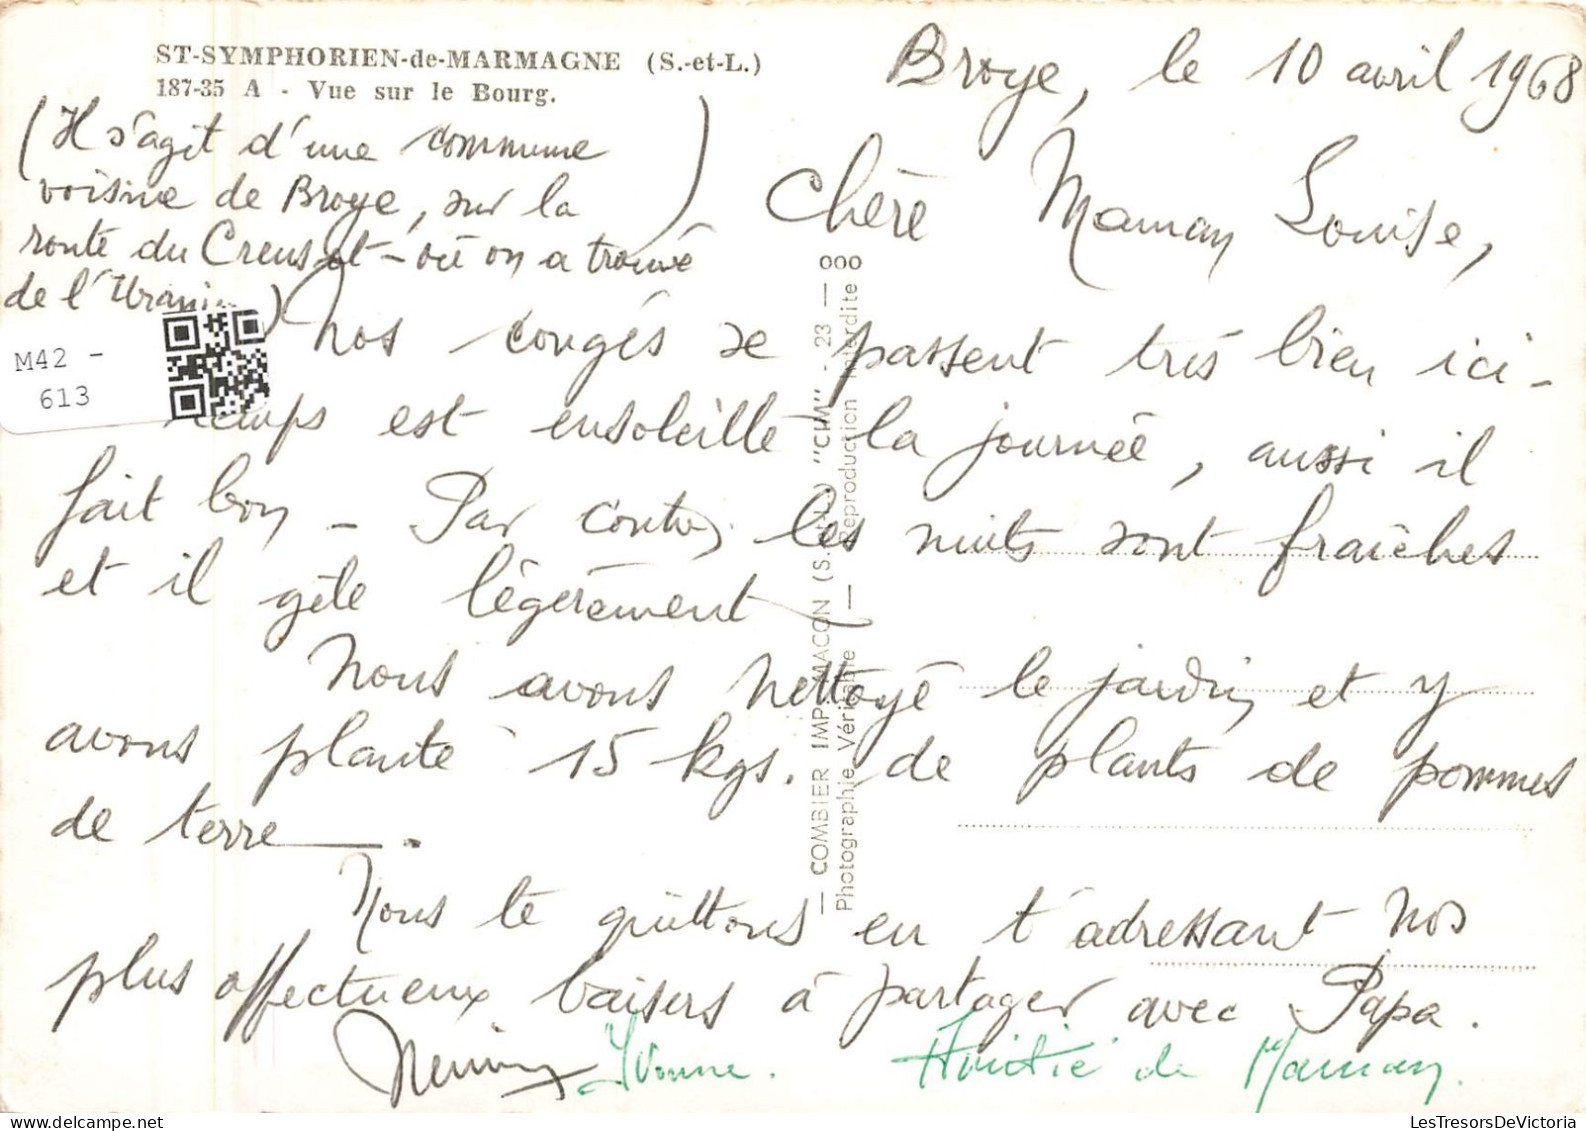 ST-SYMPHORIEN-de-MARMAGNE (S.-et-L.)
187-35 A - Vue sur le Bourg.
Broye, le 10 avril 1968
(Il s'agit d'une commune
voisine de Broye, sur la
route du Creusot - où on a trouvé
de l'Uranium)
Chère Maman Louise,
Nos congés se passent très bien ici -
temps est ensoleillé la journée, aussi il
fait bon - Par contre, les nuits sont fraîches
et il gèle légèrement -
Nous avons nettoyé le jardin et y
avons planté 15 kgs. de plants de pommes
de terre.
Nous te quittons en t'adressant nos
plus affectueux baisers à partager avec Papa.
Yvonne. Amitié de Maman.
M42 -
613
— COMBIER IMP. MACON (S.-et-L.) "CIM" - 23 — 000
Photographie Véritable — Reproduction Interdite
LesTresorsDeVictoria.com